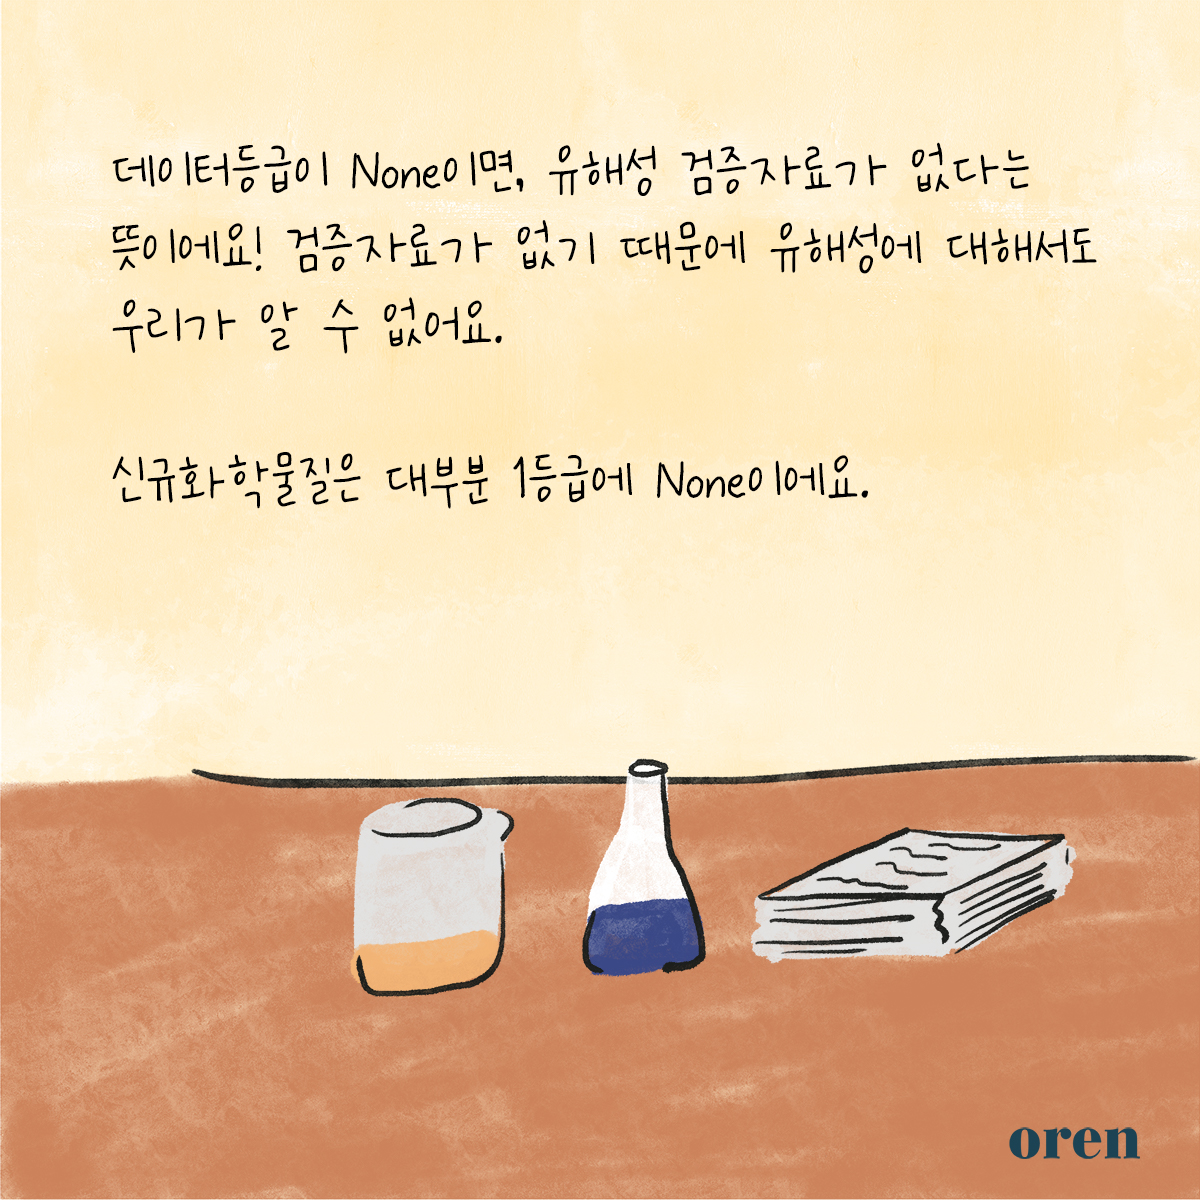 데이터등급이 None이면, 유해성 검증자료가 없다는
뜻이에요! 검증자료가 없기 때문에 유해성에 대해서도
우리가 알 수 없어요.
신규화학물질은 대부분 1등급에 None이에요.
oren